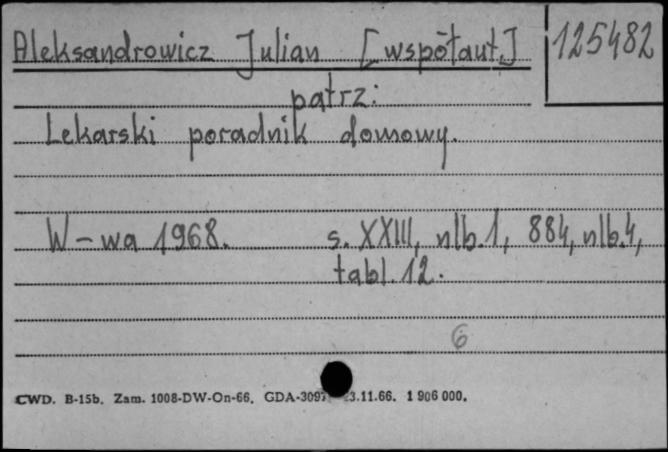 Aleksandrowicz Julian [współaut.]
125482
patrz:
Lekarski poradnik domowy.
W-wa 1968. s. XXIII, nlb.1, 884, nlb.4,
tabl. 12.
6
CWD. B-15b. Zam. 1008-DW-On-66. 3.11.66. 1 906 000.